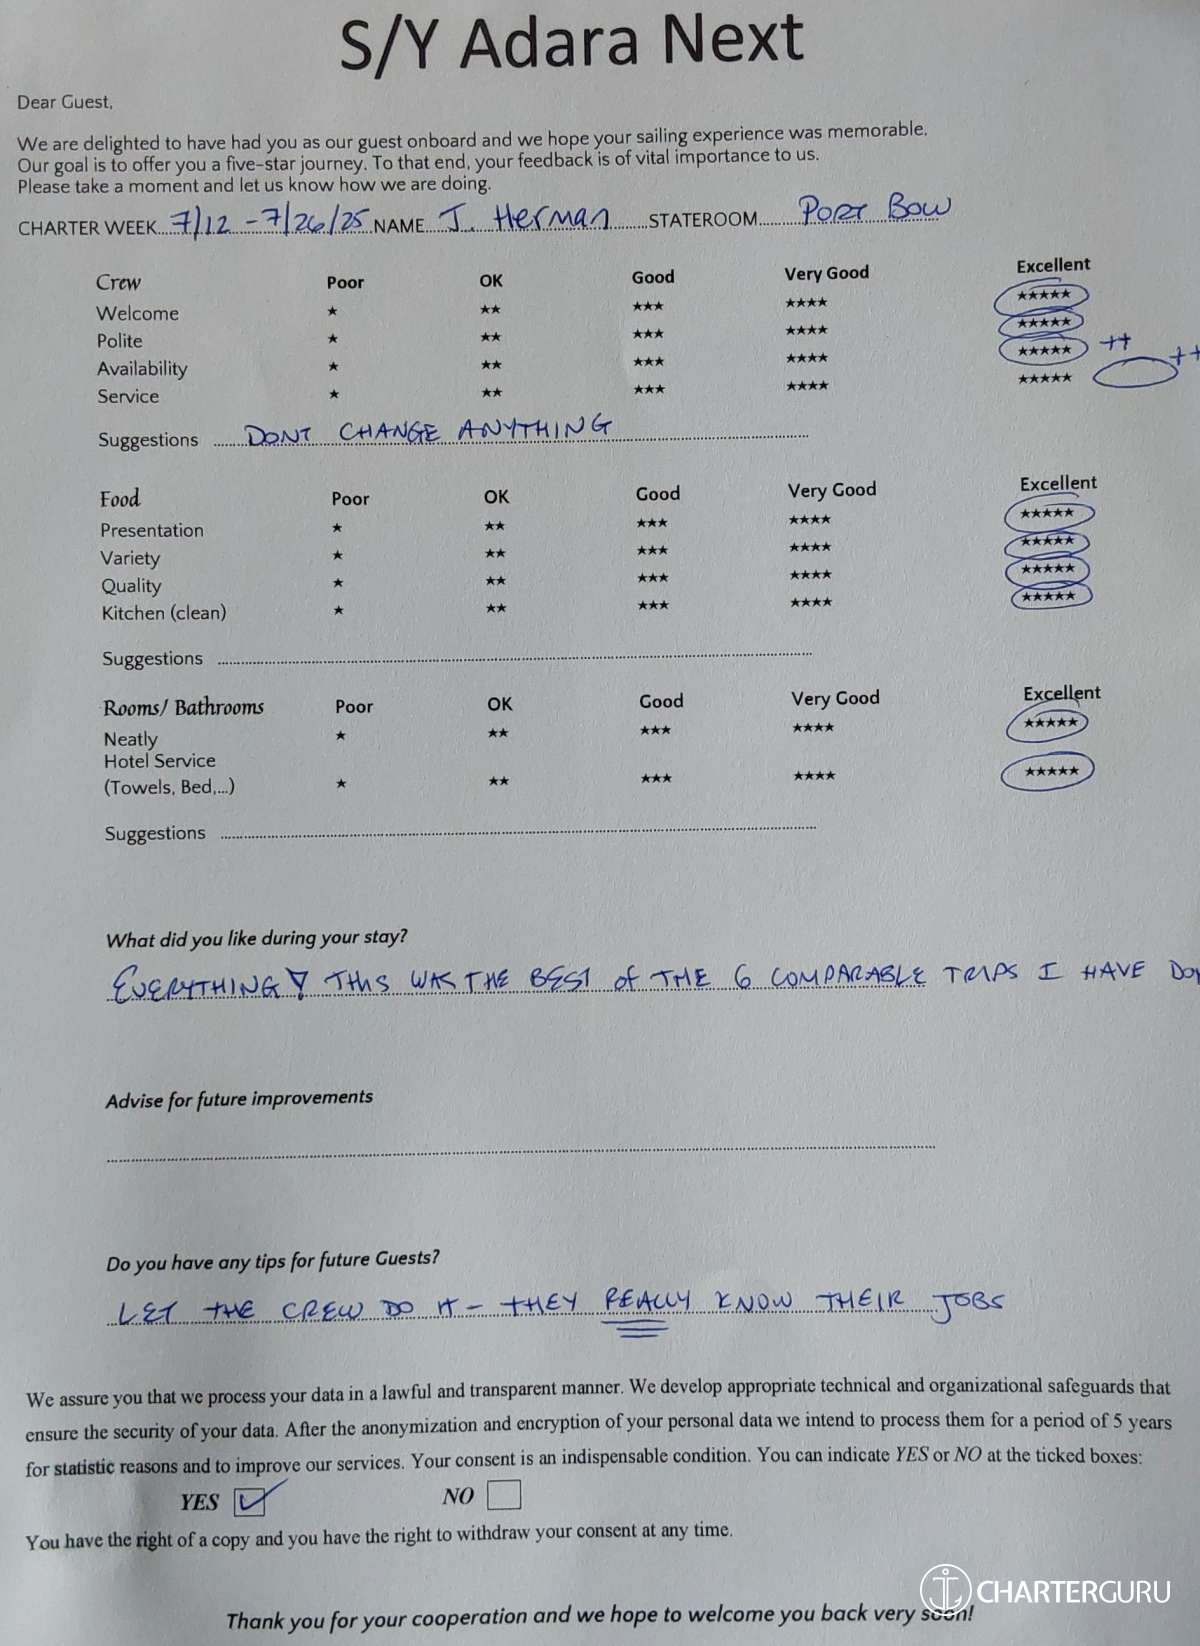 S/Y Adara Next
Dear Guest,
We are delighted to have had you as our guest onboard and we hope your sailing experience was memorable.
Our goal is to offer you a five-star journey. To that end, your feedback is of vital importance to us.
Please take a moment and let us know how we are doing.
CHARTER WEEK 7/12 - 7/26/25 NAME J. Herman STATEROOM PORT BOW
Crew Poor OK Good Very Good Excellent
Welcome ★ ★★ ★★★ ★★★★ ★★★★★
Polite ★ ★★ ★★★ ★★★★ ★★★★★
Availability ★ ★★ ★★★ ★★★★ ★★★★★ ++
Service ★ ★★ ★★★ ★★★★ ★★★★★ ++
Suggestions DONT CHANGE ANYTHING
Food Poor OK Good Very Good Excellent
Presentation ★ ★★ ★★★ ★★★★ ★★★★★
Variety ★ ★★ ★★★ ★★★★ ★★★★★
Quality ★ ★★ ★★★ ★★★★ ★★★★★
Kitchen (clean) ★ ★★ ★★★ ★★★★ ★★★★★
Suggestions
Rooms/ Bathrooms Poor OK Good Very Good Excellent
Neatly ★ ★★ ★★★ ★★★★ ★★★★★
Hotel Service
(Towels, Bed,...) ★ ★★ ★★★ ★★★★ ★★★★★
Suggestions
What did you like during your stay?
EVERYTHING! THIS WAS THE BEST of THE 6 COMPARABLE TRIPS I HAVE
Advise for future improvements
Do you have any tips for future Guests?
LET THE CREW DO IT - THEY REALLY KNOW THEIR JOBS
We assure you that we process your data in a lawful and transparent manner. We develop appropriate technical and organizational safeguards that
ensure the security of your data. After the anonymization and encryption of your personal data we intend to process them for a period of 5 years
for statistic reasons and to improve our services. Your consent is an indispensable condition. You can indicate YES or NO at the ticked boxes:
YES ✓ NO
You have the right of a copy and you have the right to withdraw your consent at any time.
CHARTERGURU
Thank you for your cooperation and we hope to welcome you back very soon!